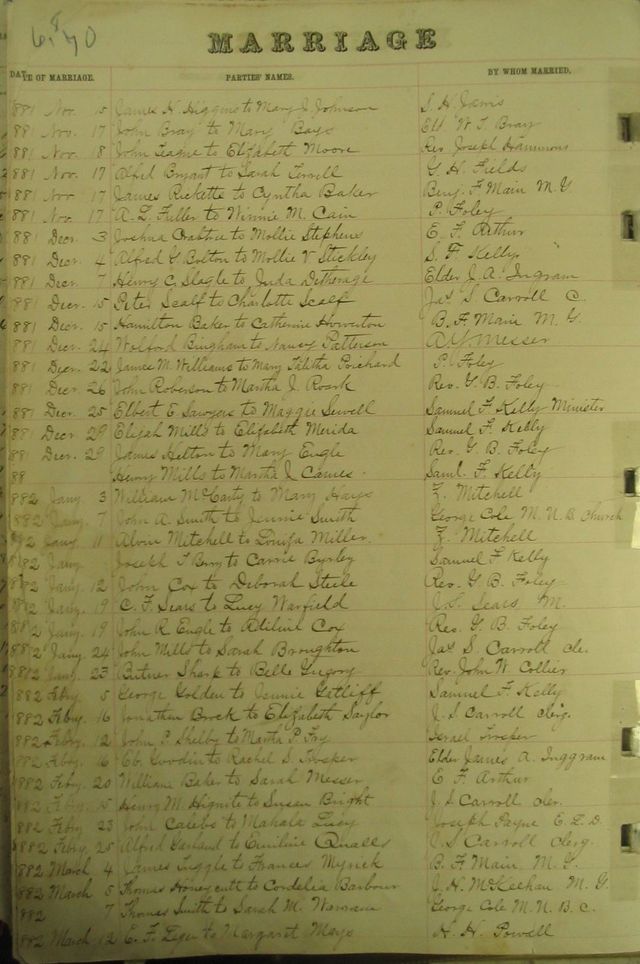 6.840
MARRIAGE
DATE OF MARRIAGE. PARTIES' NAMES. BY WHOM MARRIED.
881 Nov. 15 James H. Higgins to Mary J. Johnson S. H. Jarvis
881 Nov. 17 John Bray to Mary Bays Eld W. T. Bray
881 Nov. 18 John League to Elizabeth Moore Rev Joseph Hammons
881 Nov. 17 Alfred Bryant to Sarah Terrell G. H. Fields
881 Nov. 17 James Rickette to Cyntha Baker Benj. F Main M. G
881 Nov. 17 A. L. Fuller to Winnie M. Cain P. Foley
881 Decr. 3 Joshua Crabtree to Mollie Stephens E. F. Arthur
881 Decr. 4 Alfred G Bolton to Mollie V Stickley S. F. Kelly
881 Decr. 7 Henry C. Slagle to Juda Ditherage Elder J. A. Ingram
881 Decr. 15 Peter Scalf to Charlotte Scalf Jas S. Carroll C.
881 Decr. 15 Hamilton Baker to Catherine Howerton B. F. Main M. G.
881 Decr. 24 Wolford Bingham to Nancy Patterson Messer
881 Decr. 22 James M. Williams to Mary Talitha Prichard P. Foley
881 Decr. 26 John Roberson to Martha J. Roark Rev. G. B. Foley
881 Decr. 25 Elbert E Sawyers to Maggie Sewell Samuel F. Kelly Minister
881 Decr. 29 Elijah Mills to Elizabeth Merida Samuel F. Kelly
881 Decr. 29 James Helton to Mary Engle Rev. G. B. Foley
88 Henry Mills to Martha J. Carnes Saml. F. Kelly
882 Jany. 3 William McCarty to Mary Hays Z. Mitchell
882 Jany. 7 John A. Smith to Jennie Smith George Cole M. U. B. Church
882 Jany. 11 Alvin Mitchell to Louisa Miller Z. Mitchell
882 Jany. Joseph T Berry to Carrie Byrley Samuel F. Kelly
882 Jany. 12 John Cox to Deborah Steele Rev. G. B. Foley
882 Jany. 19 C. F. Sears to Lucy Warfield Sears M.
882 Jany. 19 John R. Engle to Cox Rev. G. B. Foley
882 Jany. 24 John Mills to Sarah Broughton Jas S. Carroll Cle.
882 Jany. 23 Bitner Sharp to Belle Gregory Rev. John W. Collier
882 Feby. 5 George Golden to Jennie Gatliff Samuel F. Kelly
882 Feby. 16 Jonathan Brock to Elizabeth Saylor J. S Carroll Clerg.
882 Feby. 12 John P. Shelby to Martha P. Fry Israel Prosper
882 Feby. 16 Eb. Goodin to Rachel S. Prosper Elder James A. Inggram
882 Feby. 20 William Baker to Sarah Messer E F. Arthur
882 Feby. 15 Henry M. Hignite to Susan Bright J. S Carroll Cler.
882 Feby 23 John Calebs to Mahala Lucy Joseph Payne E. L. D.
882 Feby. 25 Alfred Garland to Emiline Qualls J. S Carroll Clerg.
882 March 4 James Inggle to Frances Myrick B. F. Main, M. G.
882 March 5 Thomas Honeycutt to Cordelia Barbour J. H. McKeehan M. G.
882 7 Thomas Smith to Sarah M. George Cole M. U. B. C.
882 March 12 E. F. to Margaret Mays H. H. Powell